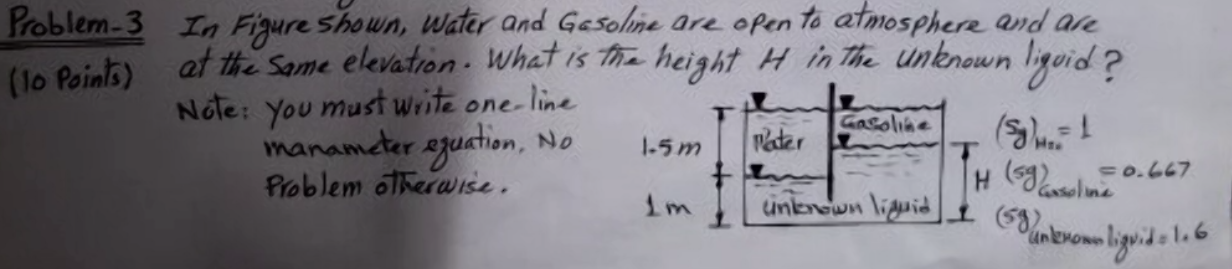 Problem-3 In Figure shown, Water and Gasoline are open to atmosphere and are
(10 Points) at the same elevation. What is the height H in the unknown liquid?
Note: you must write one-line
manameter equation, No
Problem otherwise.
1.5m
1m
Water
Gasoline
unknown liquid
H
(Sg)H2O = 1
(sg)Gasoline = 0.667
(sg)unknown liquid = 1.6